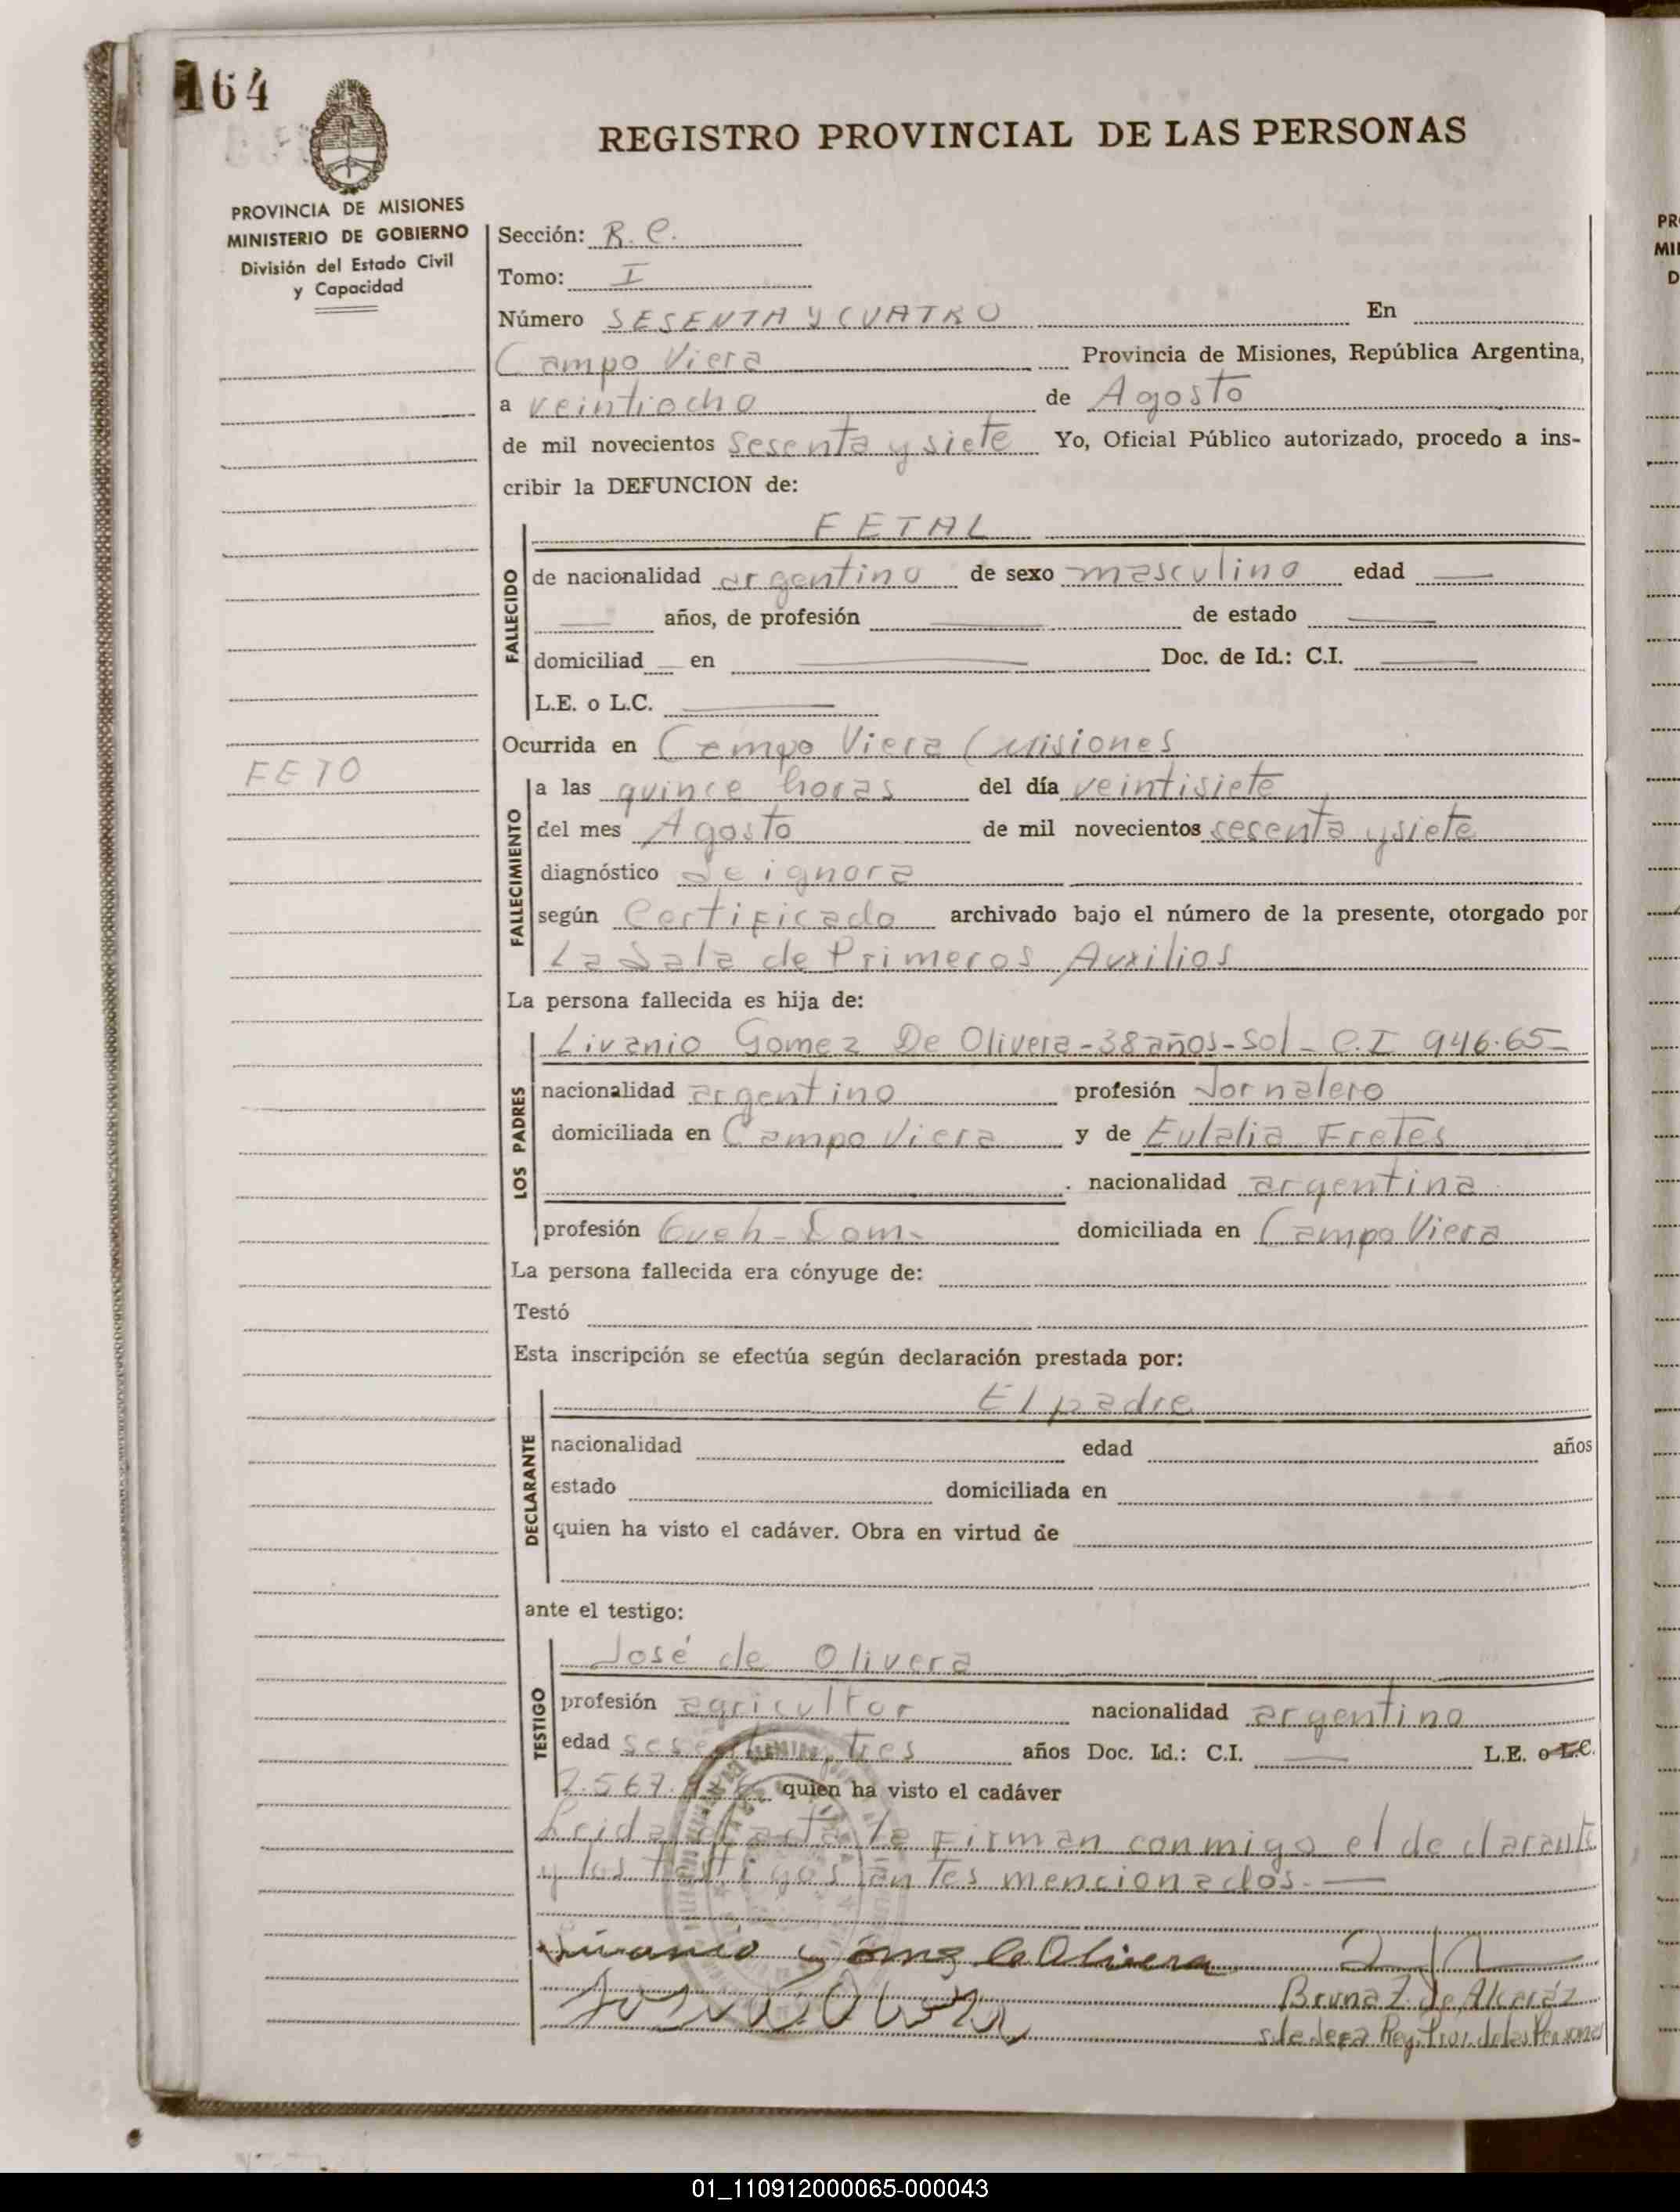 164
REGISTRO PROVINCIAL DE LAS PERSONAS
PROVINCIA DE MISIONES
MINISTERIO DE GOBIERNO
División del Estado Civil
y Capacidad
Sección: R. C.
Tomo: I
Número SESENTA Y CUATRO En
Campo Viera Provincia de Misiones, República Argentina,
a veintiocho de Agosto
de mil novecientos sesenta y siete Yo, Oficial Público autorizado, procedo a ins-
cribir la DEFUNCION de:
FETAL
FALLECIDO
de nacionalidad argentino de sexo masculino edad —
— años, de profesión — de estado —
domiciliad — en — Doc. de Id.: C.I. —
L.E. o L.C. —
Ocurrida en Campo Viera (Misiones
FETO
FALLECIMIENTO
a las quince horas del día veintisiete
del mes Agosto de mil novecientos sesenta y siete
diagnóstico se ignora
según Certificado archivado bajo el número de la presente, otorgado por
La Sala de Primeros Auxilios
La persona fallecida es hija de:
LOS PADRES
Livanio Gomez De Olivera-38 años-Sol- C.I 946.65-
nacionalidad argentino profesión Jornalero
domiciliada en Campo Viera y de Eulalia Fretes
nacionalidad argentina
profesión Dom. domiciliada en Campo Viera
La persona fallecida era cónyuge de:
Testó
Esta inscripción se efectúa según declaración prestada por:
DECLARANTE
El padre
nacionalidad edad años
estado domiciliada en
quien ha visto el cadáver. Obra en virtud de
ante el testigo:
TESTIGO
José de Olivera
profesión agricultor nacionalidad argentino
edad sesenta y tres años Doc. Id.: C.I. — L.E. o L.C.
2.567. quien ha visto el cadáver
Leida el acta la firman conmigo el declarante
y los testigos antes mencionados.—
Livanio Gomez de Olivera
Bruna Z. de Alcaráz
Reg. Prov. de las Personas
01_110912000065-000043